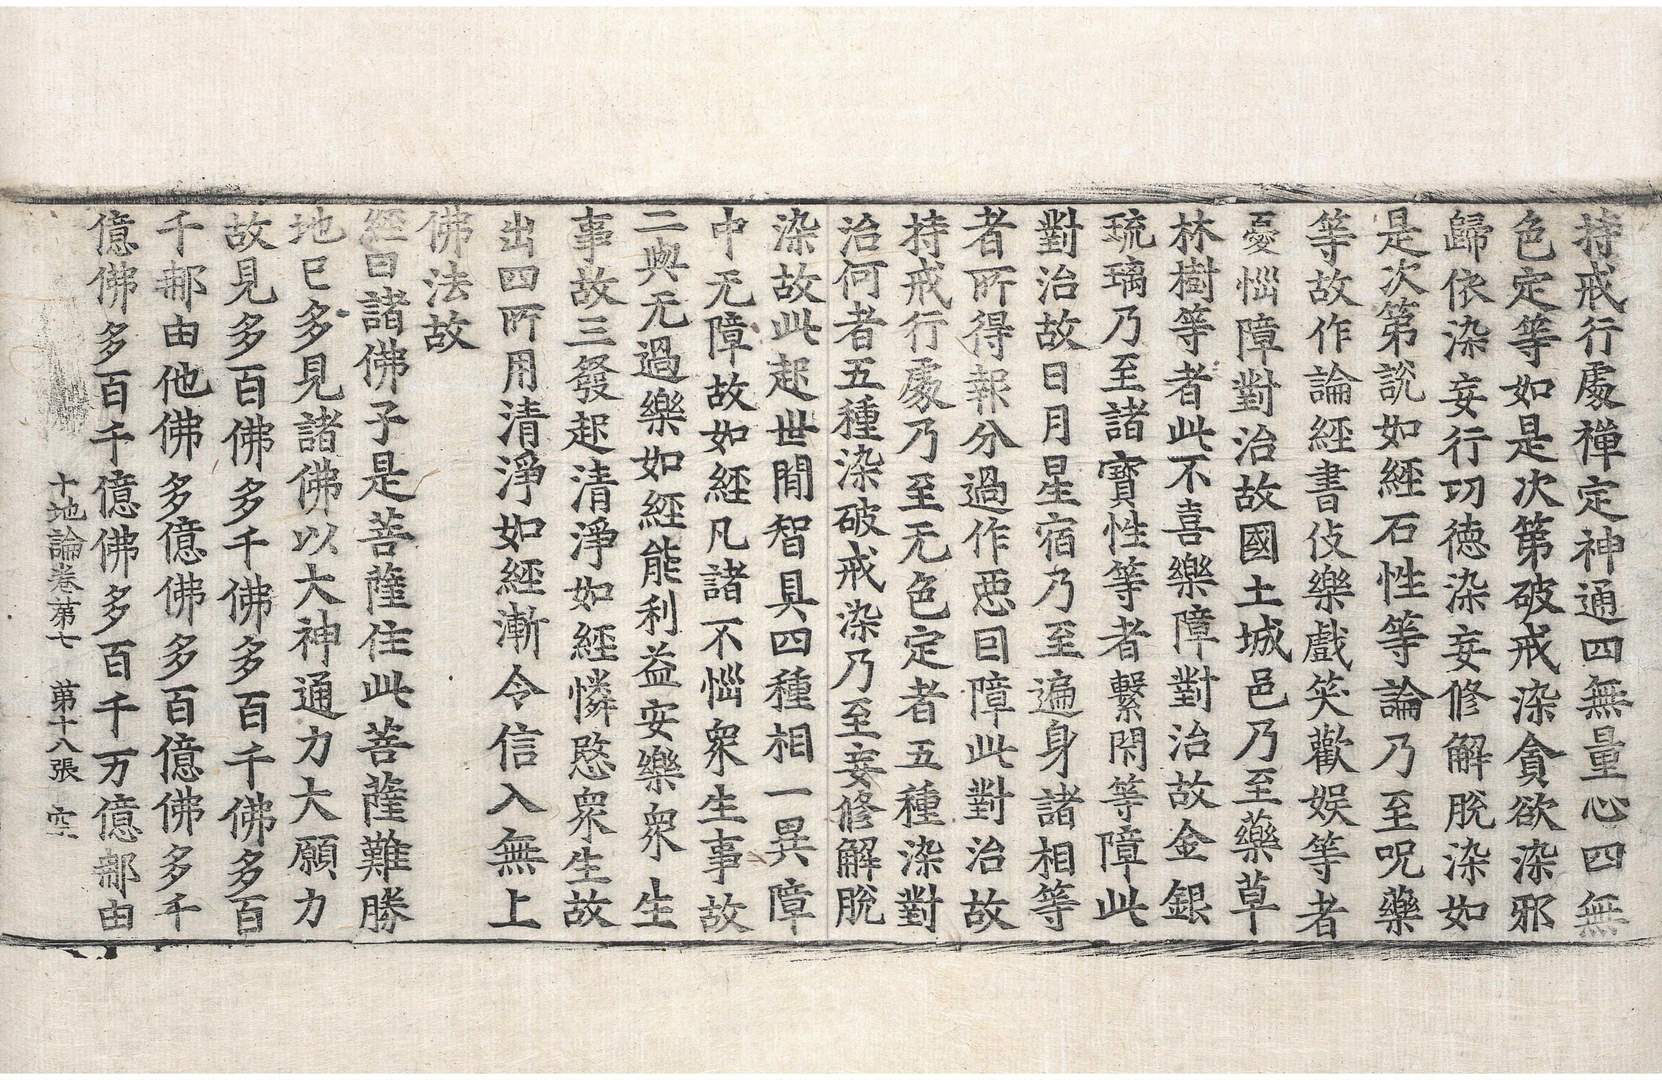 持戒行處禪定神通四無量心四無
色定等如是次第破戒染貪欲染邪
歸依染妄行功德染妄修解脫染如
是次第說如經石性等論乃至呪藥
等故作論經書伎樂戲笑歡娛等者
憂惱障對治故國土城邑乃至藥草
林樹等者此不喜樂障對治故金銀
琉璃乃至諸寶性等者繫閇等障此
對治故日月星宿乃至遍身諸相等
者所得報分過作惡因障此對治故
持戒行處乃至无色定者五種染對
治何者五種染破戒染乃至妄修解脫
染故此起世間智具四種相一異障
中无障故如經凡諸不惱衆生事故
二與无過樂如經能利益安樂衆生
事故三發起清淨如經憐愍衆生故
出四所用清淨如經漸令信入無上
佛法故
經曰諸佛子是菩薩住此菩薩難勝
地已多見諸佛以大神通力大願力
故見多百佛多千佛多百千佛多百
千那由他佛多億佛多百億佛多千
億佛多百千億佛多百千万億那由
十地論卷第七　第十八張　空